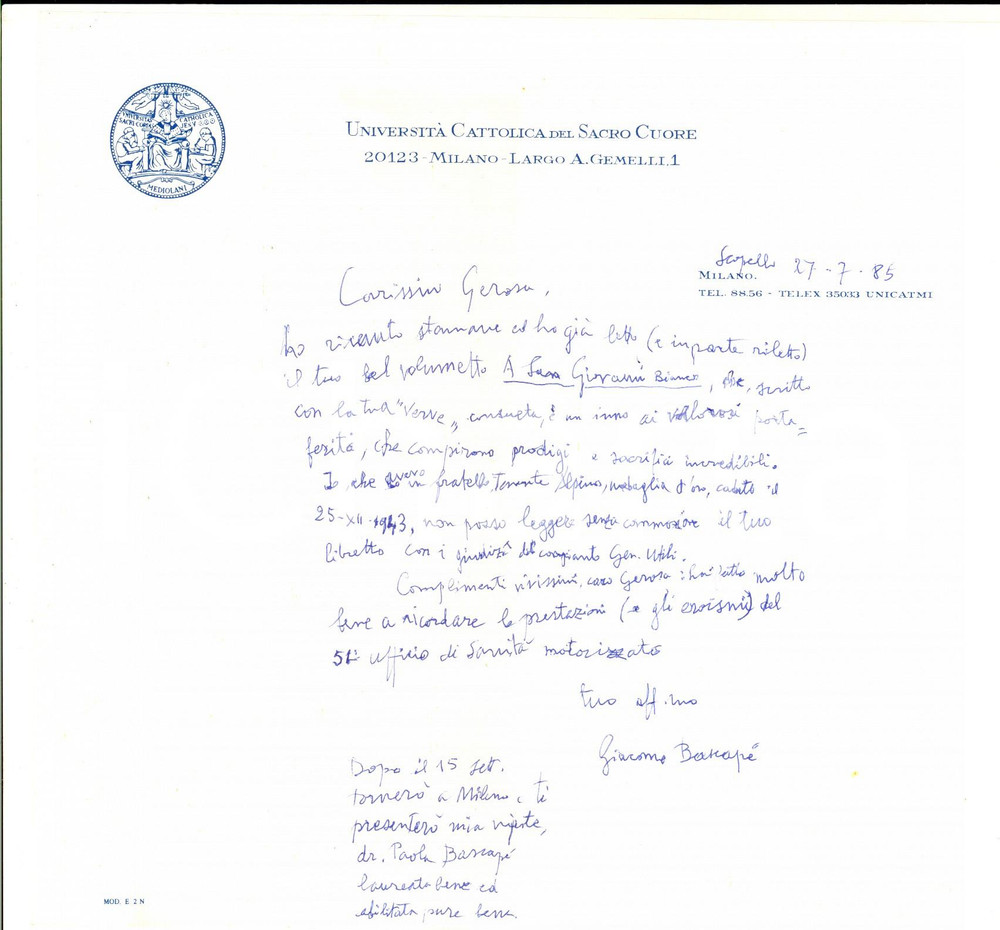 UNIVERSITAS CATHOLICA
SACRI CORDIS JESV
MEDIOLANI
UNIVERSITÀ CATTOLICA DEL SACRO CUORE
20123 - MILANO - LARGO A. GEMELLI, 1
Scopello 27-7-85
MILANO.
TEL. 88.56 - TELEX 35033 UNICATMI
Carissimo Gerosa,
ho ricevuto stamane ed ho già letto (e in parte riletto)
il tuo bel volumetto A San Giovanni Bianco, che, scritto
con la tua "verve" consueta, è un inno ai valorosi porta=
feriti, che compirono prodigi e sacrifici incredibili.
Io, che avevo un fratello, Tenente Alpino, medaglia d'oro, caduto il
25-XII-1943, non posso leggere senza commozione il tuo
libretto con i giudizi del compianto Gen. Utili.
Complimenti vivissimi, caro Gerosa: hai fatto molto
bene a ricordare le prestazioni (e gli eroismi) del
51º ufficio di Sanità motorizzato
tuo aff.mo
Giacomo Bascapé
Dopo il 15 sett.
tornerò a Milano e ti
presenterò mia nipote,
dr. Paola Bascapé
laureata bene ed
abilitata pure bene.
MOD. E 2 N